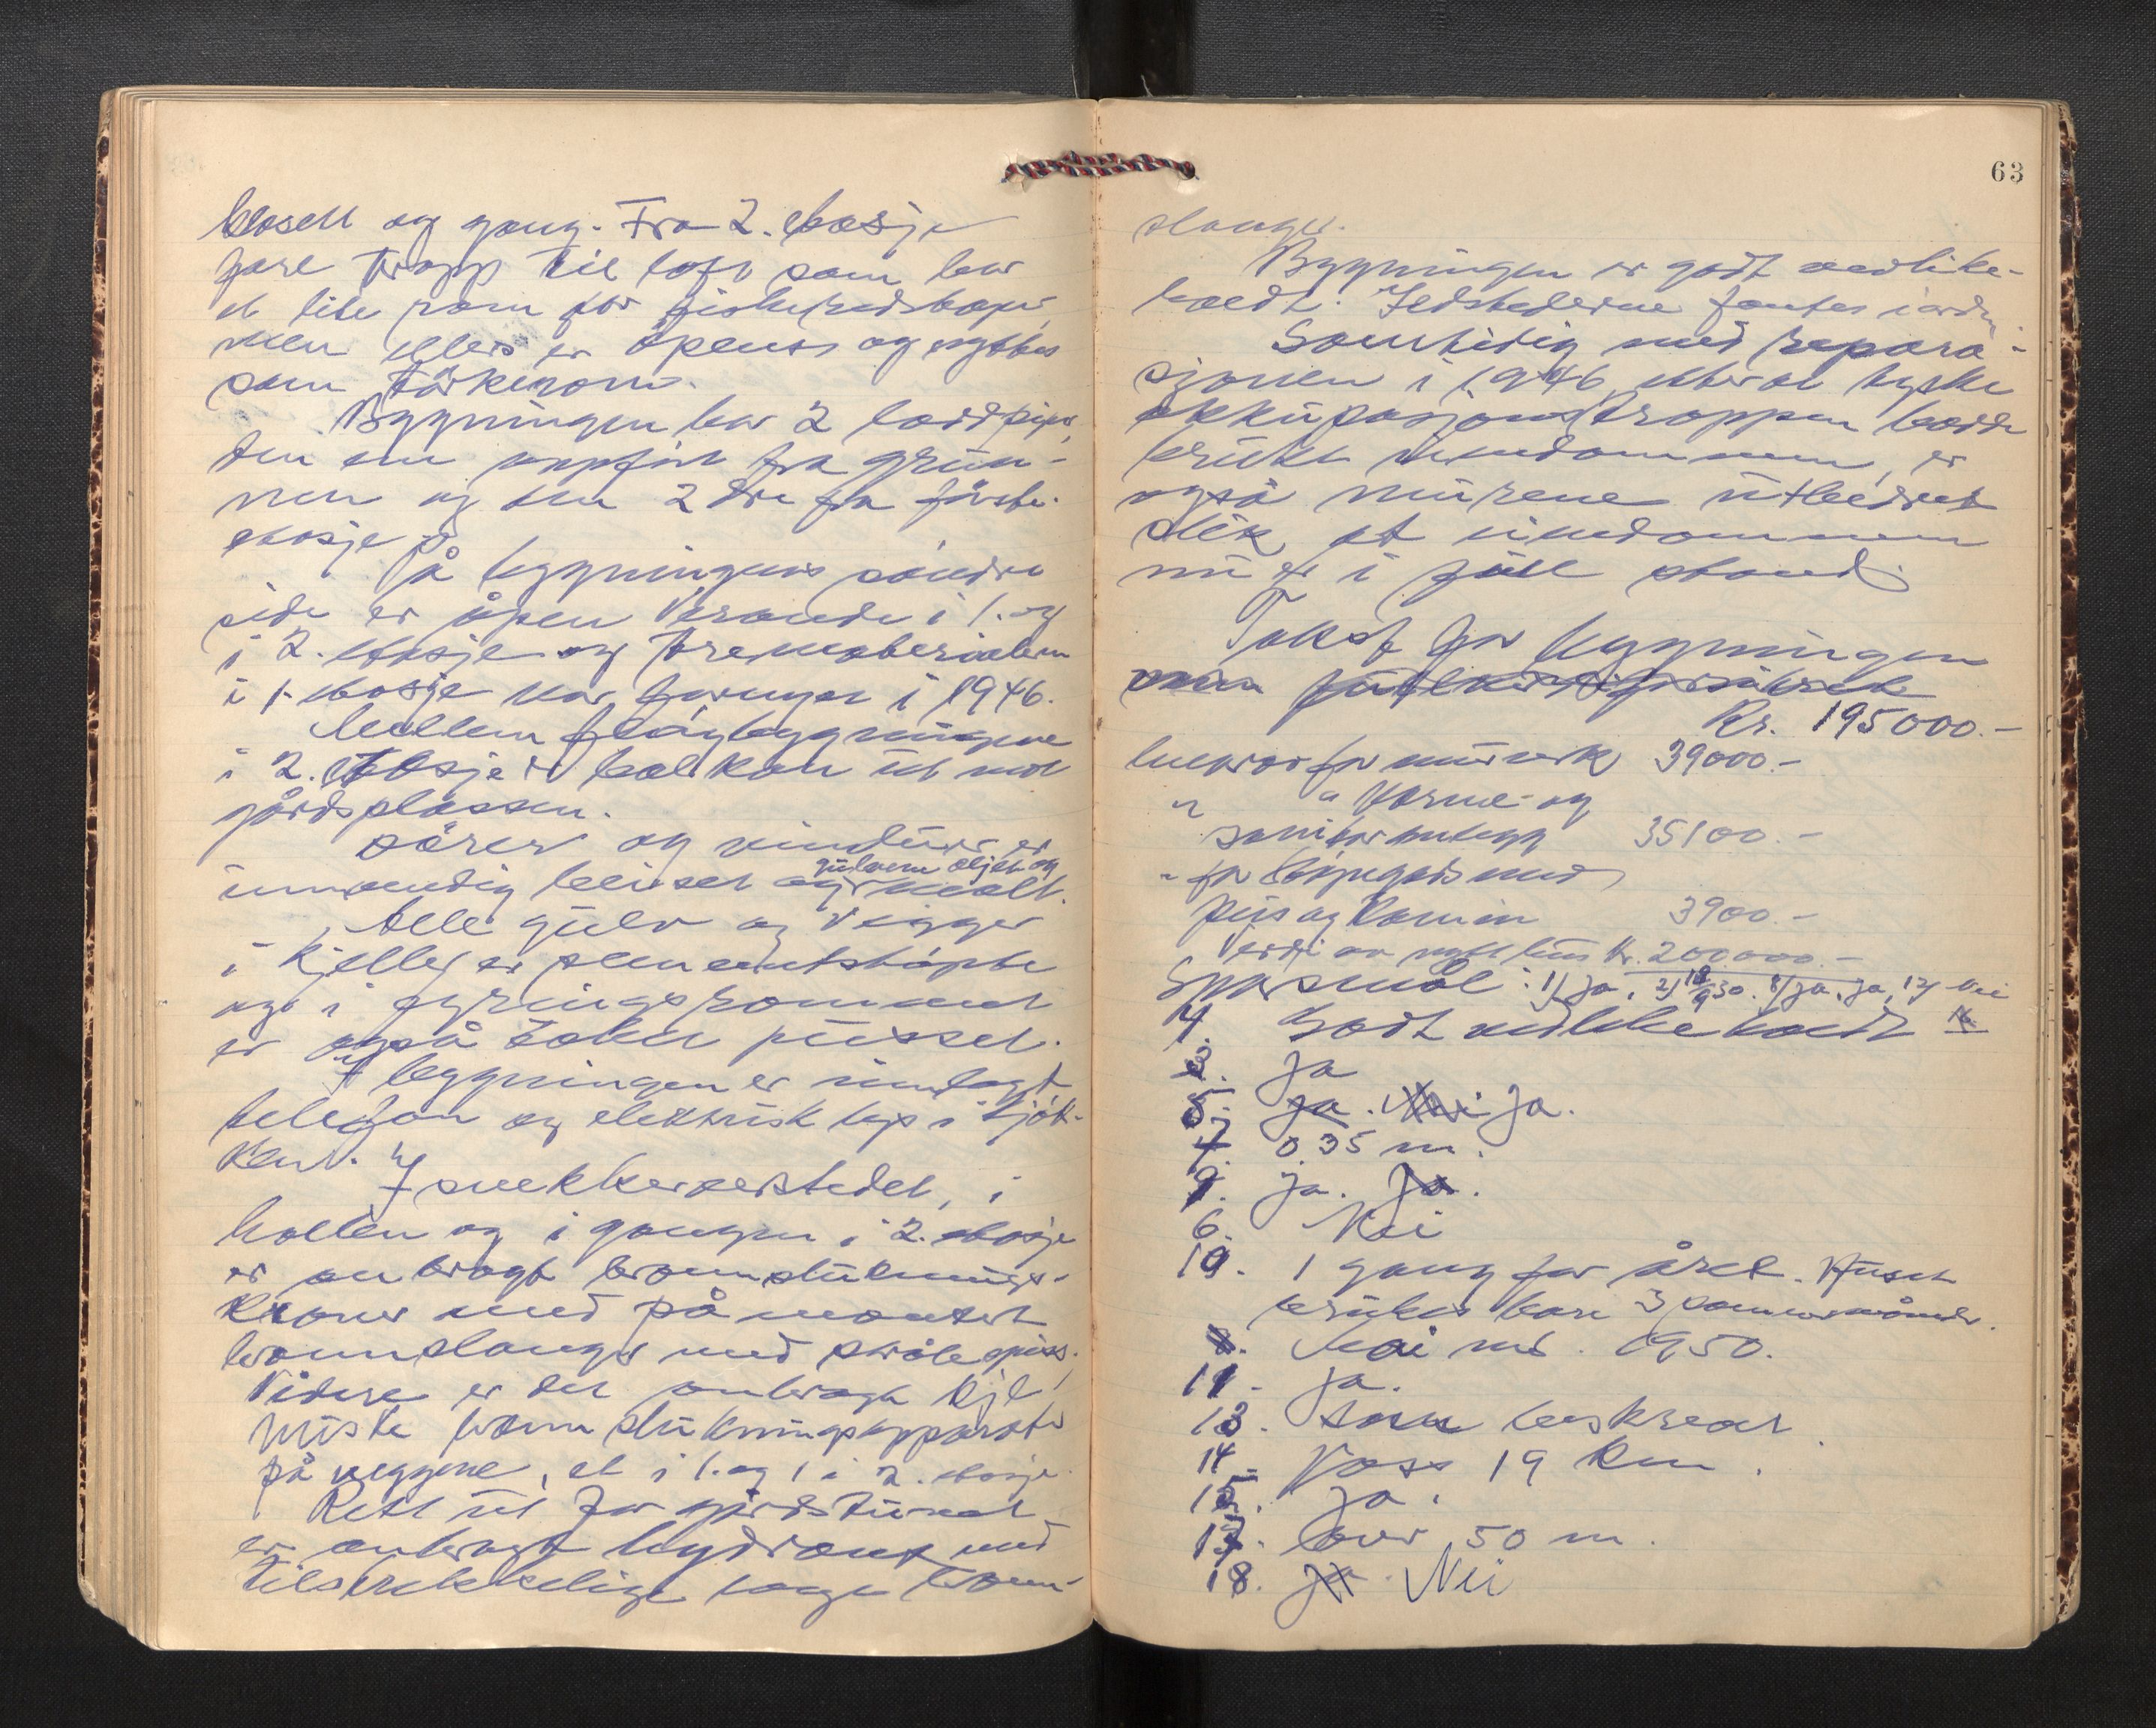 klosett og gang. Fra 2. etasje
fører trapp til loft som har
et lite rom for fiskeredskaper,
men ellers er åpent og nyttes
som tørkerom.
Bygningen har 2 loddpiper,
den ene oppført fra grun-
nen og den 2dre fra første
etasje.
På bygningens søndre
side er åpen veranda i 1. og
i 2. etasje og trematerialene
i 1. etasje var fornyet i 1946.
Mellem fløybygningene
i 2. etasje er balkon ut mot
gårdsplassen.
Dører og vinduer er
gulvene oljet og
innvendig beiset og malt.
Alle gulv og vegger
i kjeller er sementstøpte
og i fyringsrommet
er også taket pusset.
I bygningen er innlagt
telefon og elektrisk lys i kjøk-
ken. I snekkerverkstedet, i
hallen og i gangen i 2. etasje
er anbragt brannsluknings-
kraner med påmontert
brannslanger med strålespiss.
Videre er det anbragt
brannslukningsapparater
på veggene, et i 1. og 1 i 2. etasje.
Rett ut for gårdstunet
er anbragt hydrant med
tilstrekkelige lange brann-
63
slanger.
Bygningen er godt vedlike-
holdt. Ildstederne fantes i orden.
Samtidig med repara-
sjonen i 1946, etterat tyske
okkupasjonstroppen hadde
brukt eiendommen, er
også murene utbedret
slik at eiendommen
nu er i full stand.
Takst for bygningen
Kr. 195000.-
hvorav for murverk 39000.-
" " varme- og
sanitæranlegg 35100.-
" for
peis og kamin 3900.-
Verdi av nytt hus kr. 200000.-
Spørsmål: 1) ja, 2) 18/9 30. 8) ja, ja, 12) Nei
4. Godt vedlikeholdt
3. Ja
5. Ja. Nei Ja.
7. 0.35 m.
9. ja. Ja.
6. Nei
10. 1 gang for året. Huset
brukes bare 3 sommermåneder.
8. Mai md. 1950.
11. ja.
13. beskrevet.
14. Voss 19 km.
15. ja.
17. over 50 m.
18. ja. Nei